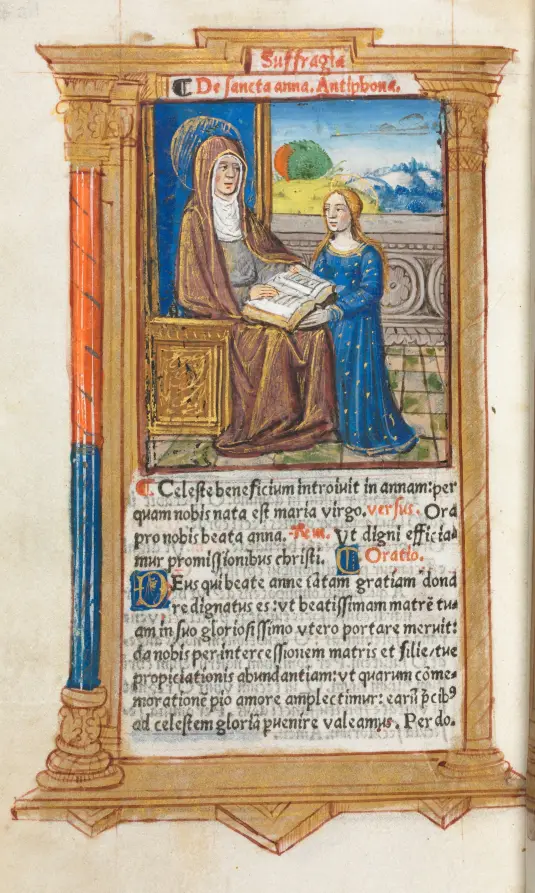 Suffragia
De sancta anna. Antiphona.
Celeste beneficium introivit in annam: per
quam nobis nata est maria virgo. versus. Ora
pro nobis beata anna. Rem. Vt digni efficia-
mur promissionibus christi. Oratio.
DEus qui beate anne tātam gratiam dona
re dignatus es: vt beatissimam matrē tu-
am in suo gloriosissimo vtero portare meruit:
da nobis per intercessionem matris et filie, tue
propiciationis abundantiam: vt quarum cōme-
morationē pio amore amplectimur: earū p̄cibꝰ
ad celestem gloriā puenire valeamus. Per do.